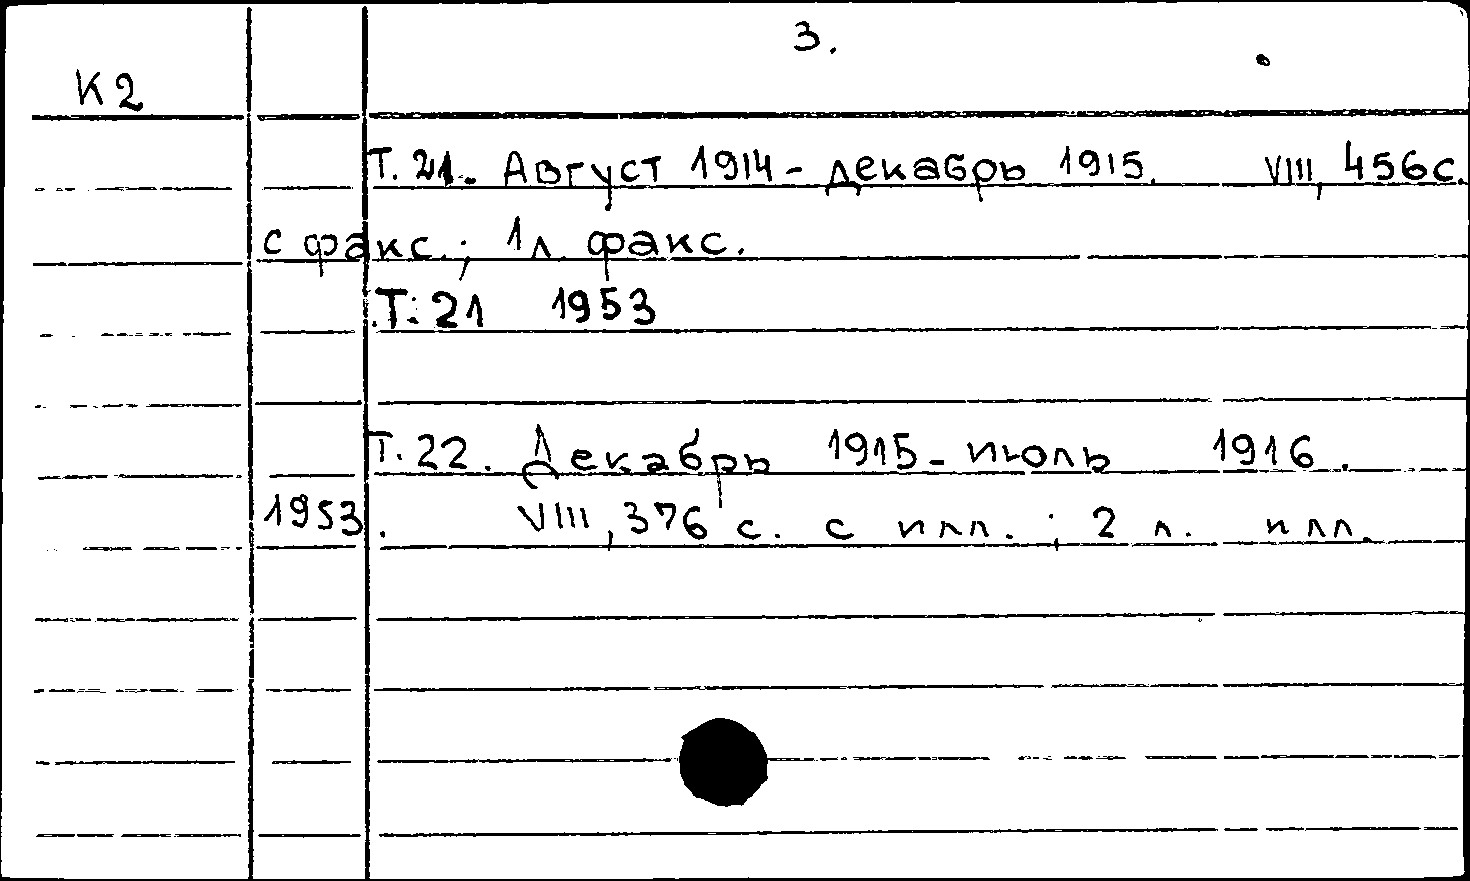 3.
К2
Т. 21. Август 1914 - декабрь 1915. VIII, 456с.
с факс.; 1л. факс.
Т. 21 1953
Т. 22. Декабрь 1915 - июль 1916.
1953. VIII, 376 с. с илл.; 2 л. илл.